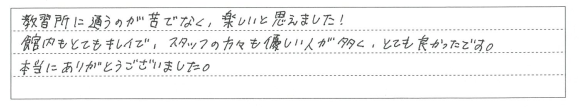 教習所に通うのが苦でなく、楽しいと思えました！
館内もとてもキレイで、スタッフの方々も優しい人が多く、とても良かったです。
本当にありがとうございました。